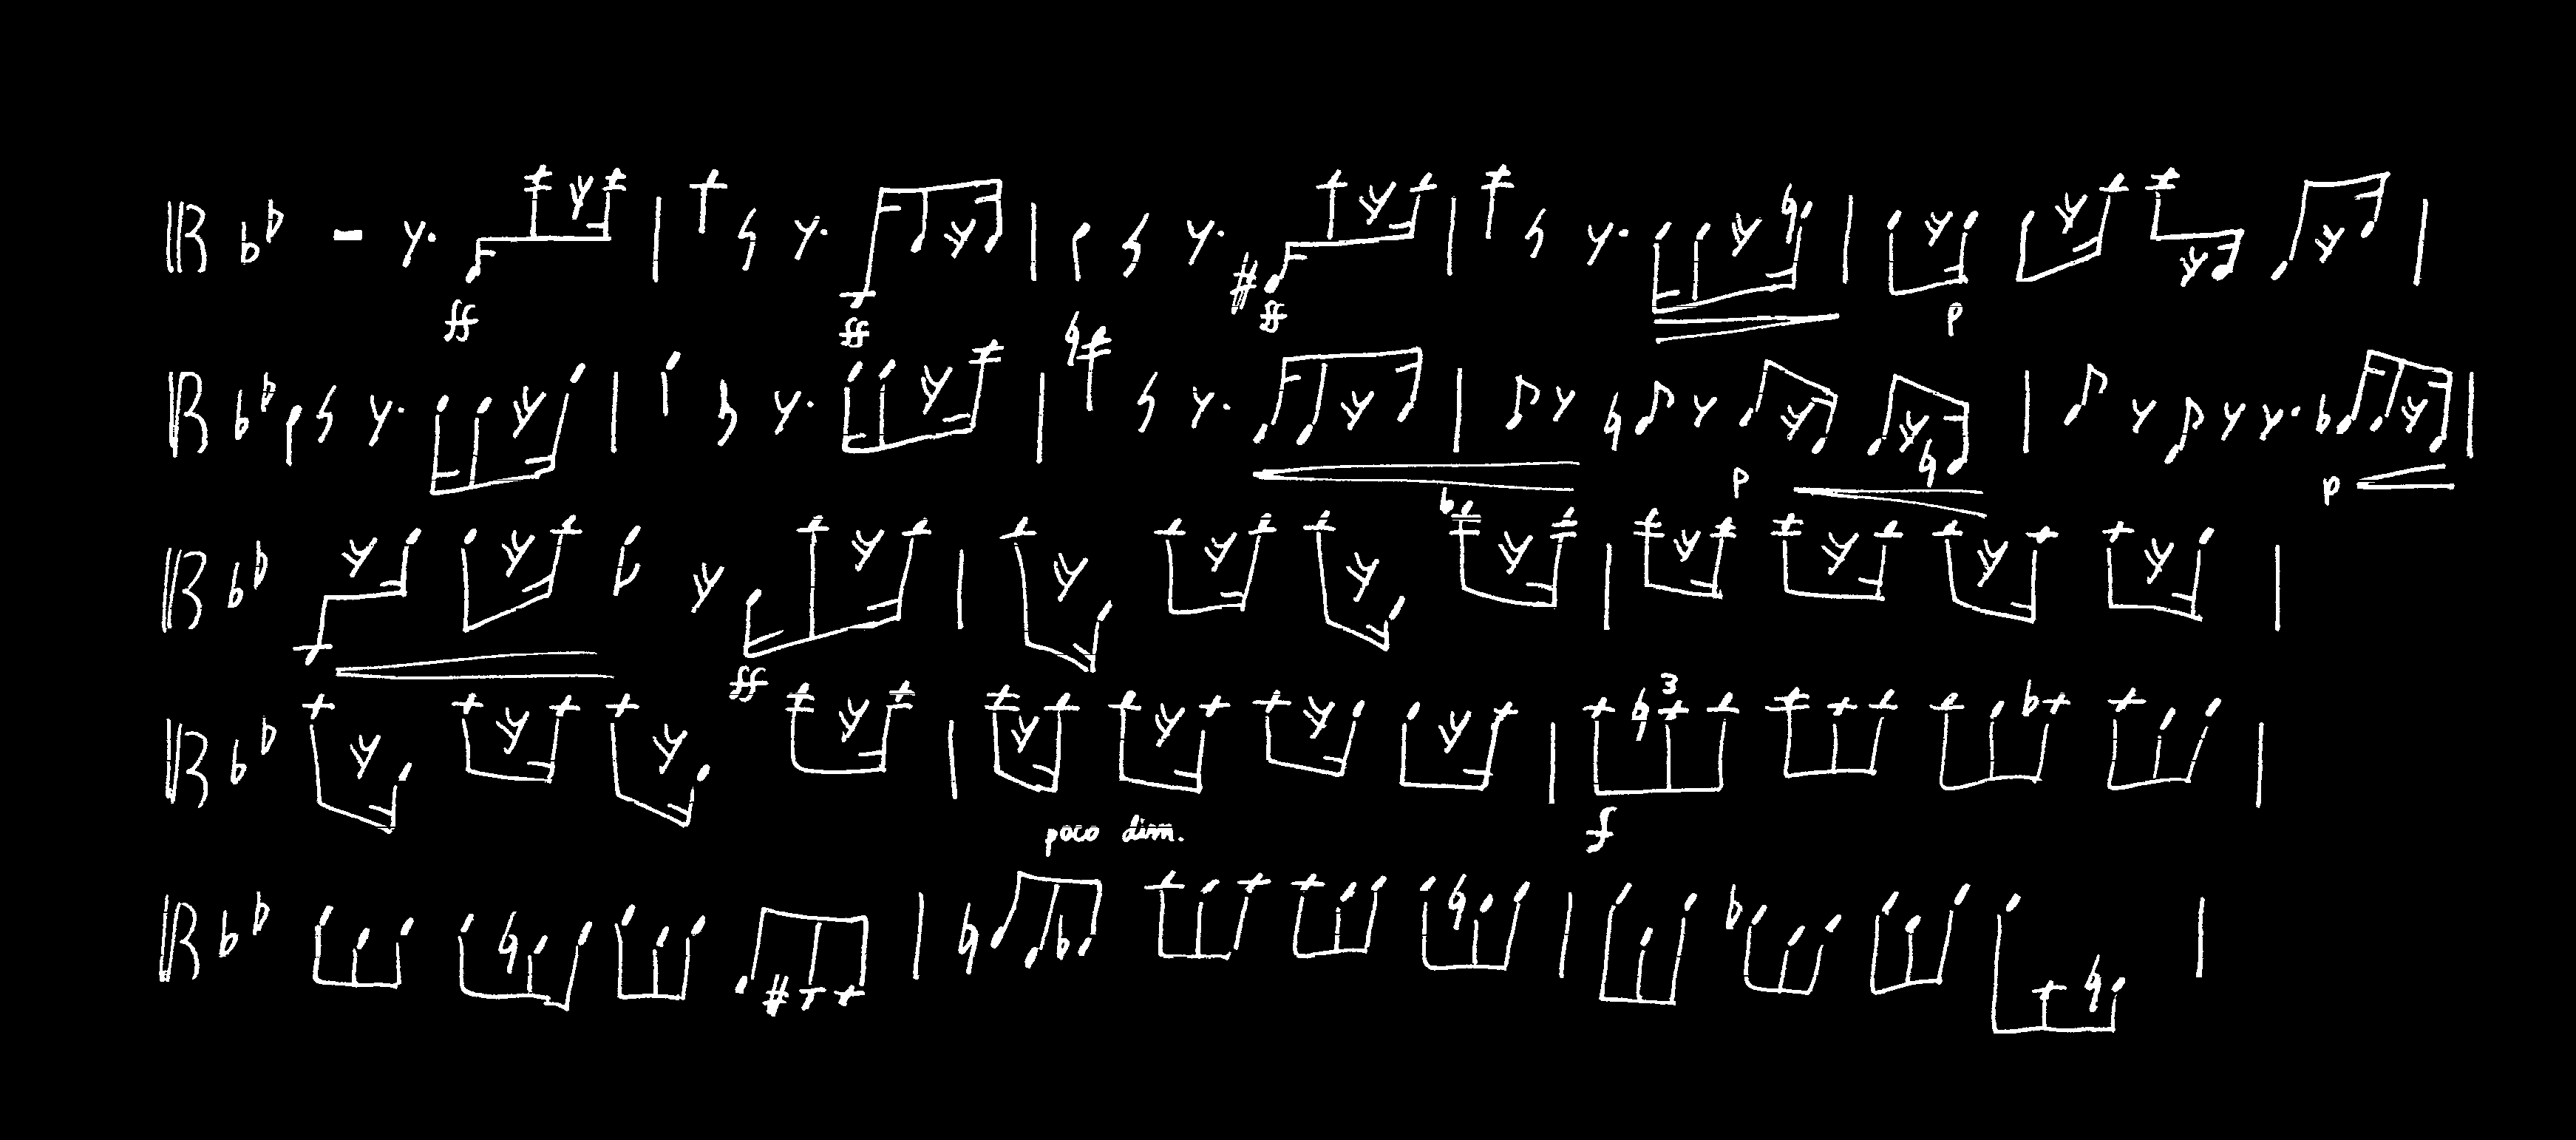 ff ff ff p
p p
3
ff
poco dim. f